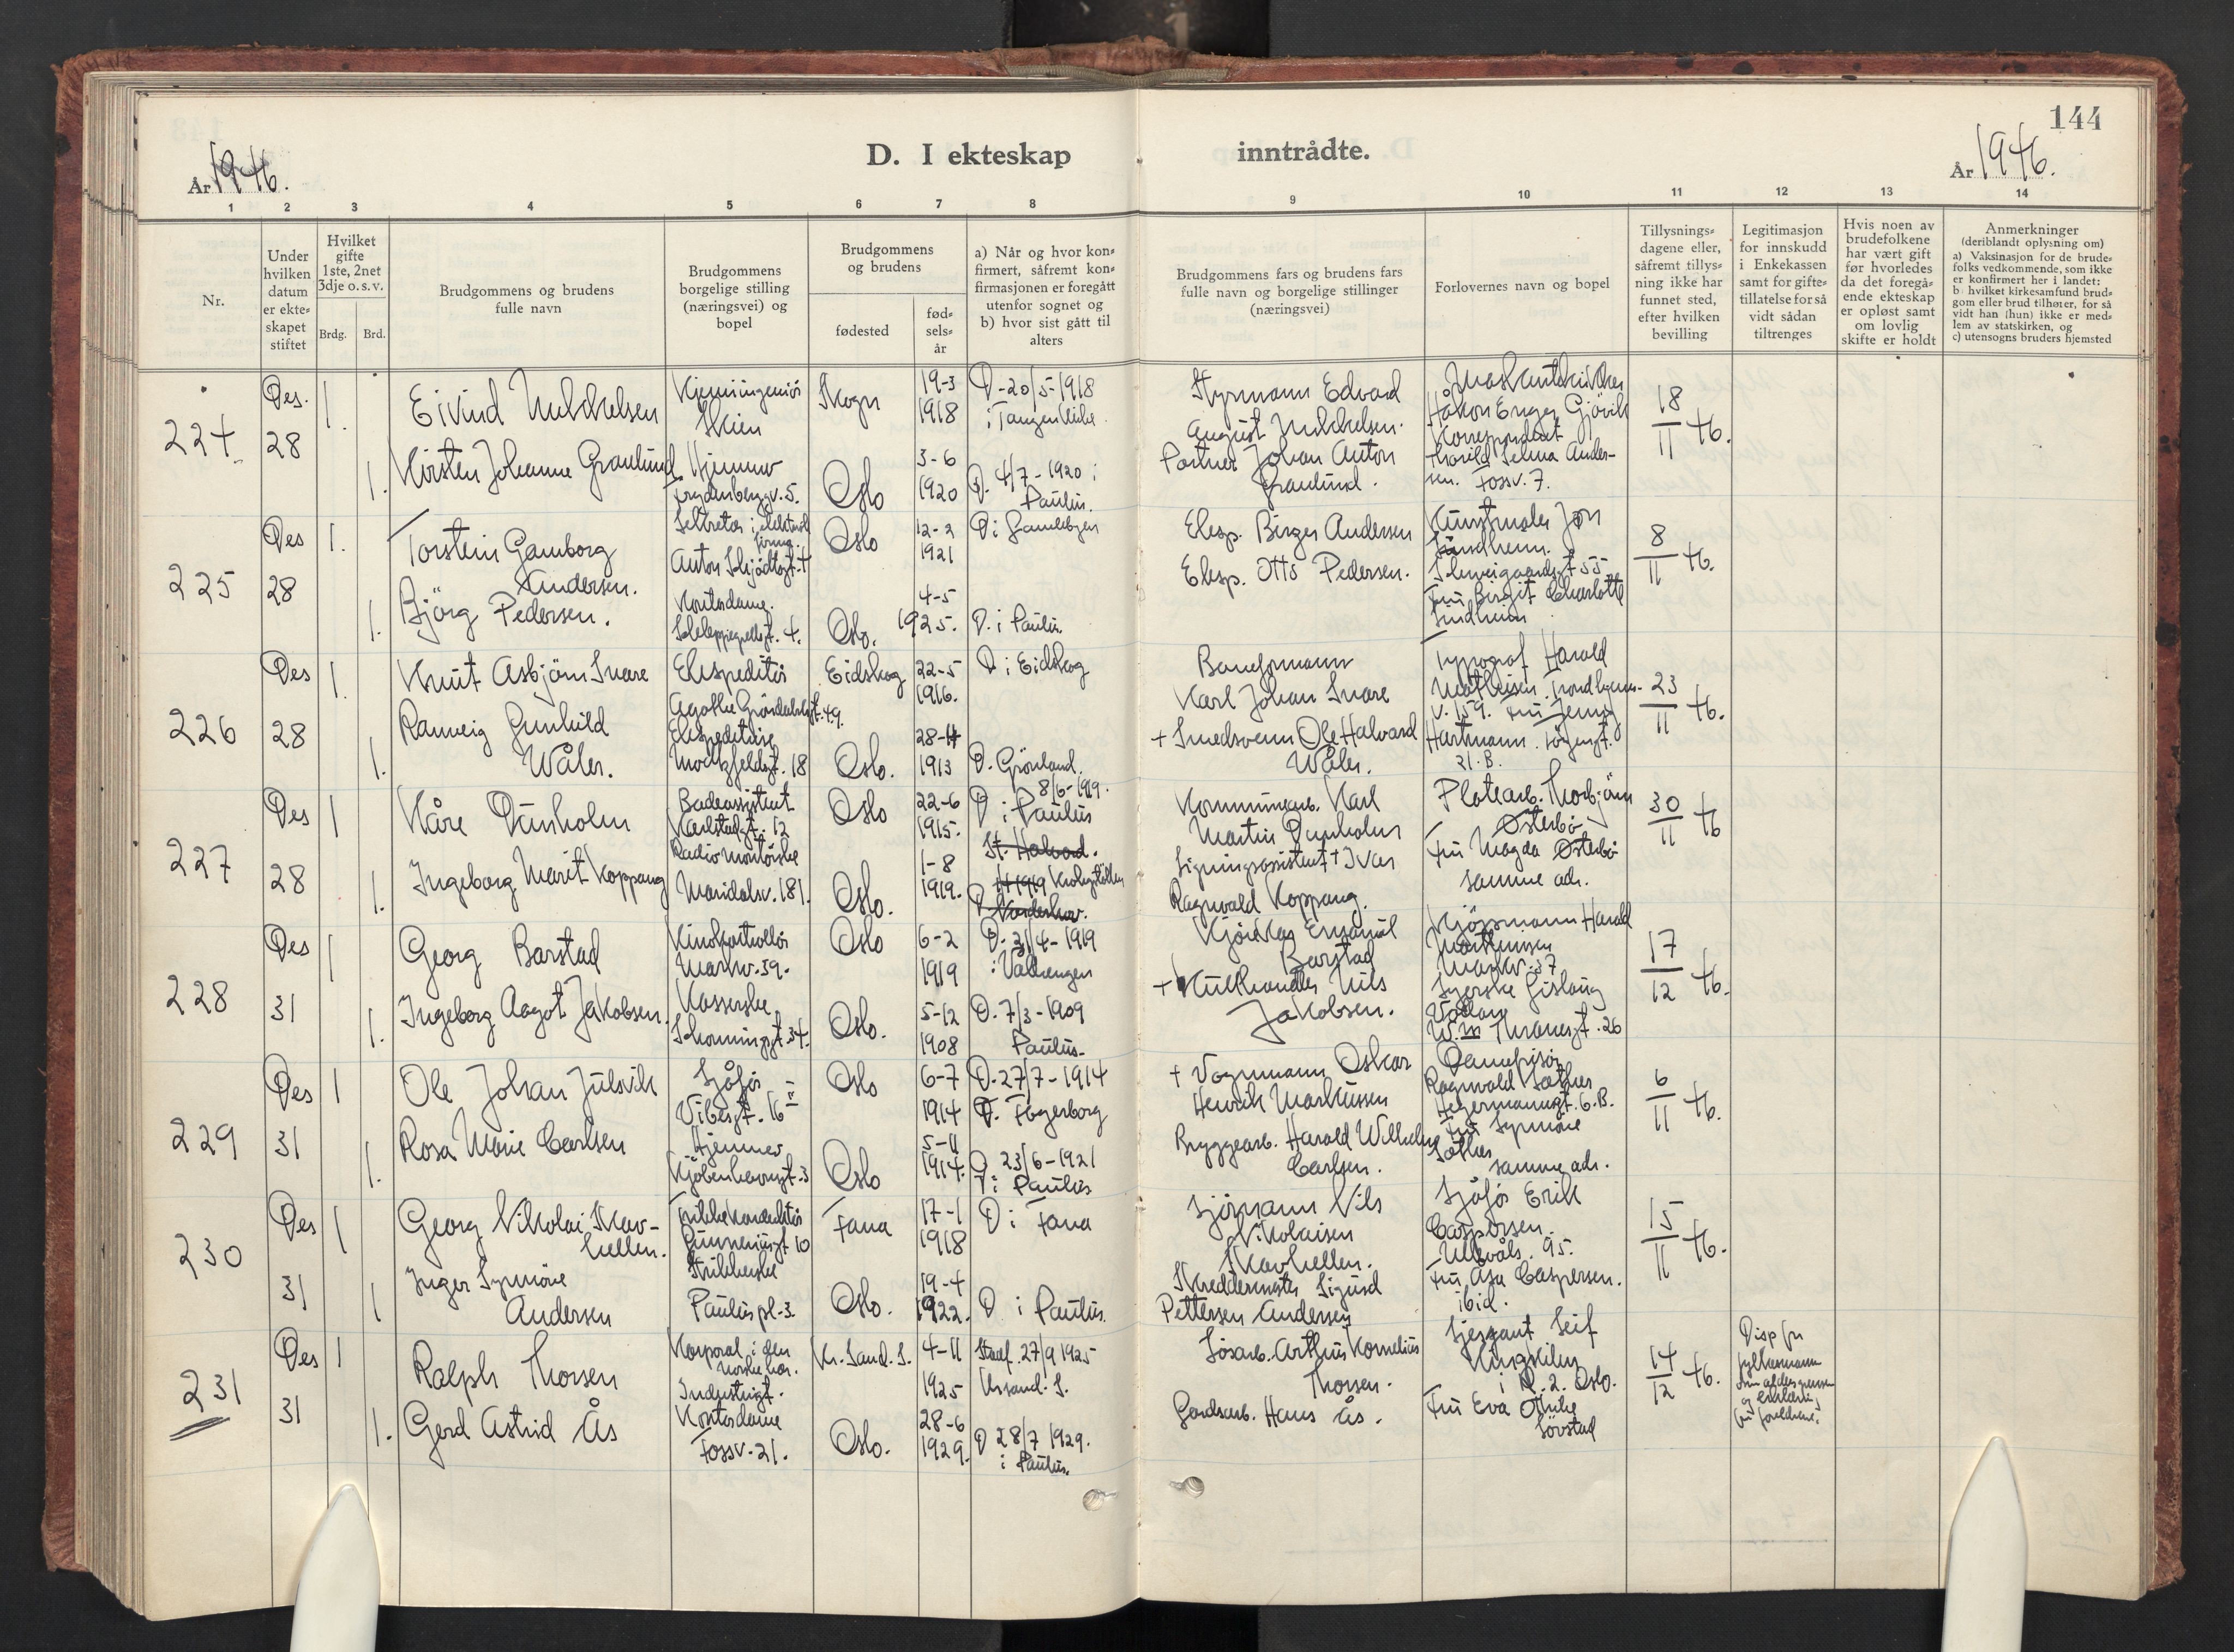 144
D. I ekteskap inntrådte.
År 1946.
År 1946.
1 2 3 4 5 6 7 8 9 10 11 12 13 14
Nr.
Under hvilken datum er ekte-skapet stiftet
Hvilket gifte 1ste, 2net 3dje o.s.v.
Brdg. Brd.
Brudgommens og brudens fulle navn
Brudgommens borgelige stilling (næringsvei) og bopel
Brudgommens og brudens
fødested
fød-sels-år
a) Når og hvor kon-firmert, såfremt kon-firmasjonen er foregått utenfor sognet og b) hvor sist gått til alters
Brudgommens fars og brudens fars fulle navn og borgelige stillinger (næringsvei)
Forlovernes navn og bopel
Tillysnings-dagene eller, såfremt tillys-ning ikke har funnet sted, efter hvilken bevilling
Legitimasjon for innskudd i Enkekassen samt for gifte-tillatelse for så vidt sådan tiltrenges
Hvis noen av brudefolkene har vært gift før hvorledes da det foregå-ende ekteskap er opløst samt om lovlig skifte er holdt
Anmerkninger
(deriblandt oplysning om)
a) Vaksinasjon for de brude-folks vedkommende, som ikke er konfirmert her i landet:
b) hvilket kirkesamfund brud-gom eller brud tilhører, for så vidt han (hun) ikke er med-lem av statskirken, og
c) utensogns bruders hjemsted
224 Des. 28 1.
Eivind Mikkelsen
Kjemiingeniør
Skien
Skogn
19-3 1918
D-20/5-1918 i Tangen kirke
Styrmann Edvard August Mikkelsen.
Håkon Enger Gjøvik
18/11 46.
1. Kirsten Johanne Granlund
Hjemme
Frydenbergv. 5.
Oslo
3-6 1920
D. 4/7-1920 i Paulus.
Portner Johan Anton Granlund.
Korrespondent
Thorild Selma Andersen. Fossv. 7.
225 Des 28 1.
Torstein Gamborg Andersen.
Sekretær i elektrisk firma.
Anton Schjødtsgt. 4
Oslo
12-2 1921
D i Gamlebyen
Eksp. Birger Andersen
Kunstmaler Jon Sundheim.
Schweigaardsgt 55
8/11 46.
1. Bjørg Pedersen.
Kontordame.
Oslo.
4-5 1925.
D. i Paulus
Eksp. Otto Pedersen.
Fru Birgit Charlotte Sundheim
226 Des 28 1.
Knut Asbjørn Svare
Ekspeditør
Agathe Grøndahlsgt. 49.
Eidskog
22-5 1916.
D i Eidskog
Banformann
Karl Johan Svare
Typograf Harald Mathisen. Trondhjemsv. 159.
23/11 46.
1. Ranveig Gunhild Wåler.
Ekspeditrise
Motzfeldsgt. 18
Oslo.
28-11 1913
D. Grønland.
+ Smedsvenn Ole Halvard Wåler.
Fru Jenny Hartmann. Sørengt. 21. B.
227 Des 28 1
Kåre Dunholm
Badeassistent
Karlstadgt. 12
Oslo
22-6 1915.
8/6-1919.
D i Paulus
Kommunearb. Karl Martin Dunholm
Platearb. Thorbjørn Østerbø
30/11 46
1. Ingeborg Marit Koppang
Radiomontørske
Maridalsv. 181.
Oslo.
1-8 1919.
St. Halvard.
Ligningsassistent + Ivar Ragnvald Koppang.
Fru Magda Østerbø samme adr.
228 Des 31 1
Georg Barstad
Kinokontrollør
Markv. 39.
Oslo
6-2 1919
D. 31/4-1919 i Vålerengen
Gjørtler Emanuel Barstad
Kjøpmann Harald Martinsen
Markv. 37
17/12 46.
1. Ingeborg Aagot Jakobsen.
Kasserske
Schouningsgt. 34.
Oslo.
5-12 1908
D. 7/3-1909 Paulus.
+ Kulhandler Nils Jakobsen.
Syerske Gislaug
Wm Thranesgt. 26
229 Des 31 1
Ole Johan Julsvik
Sjåfør
Vibesgt. 16
Oslo
6-7 1914
D. 27/7-1914
D. Fagerborg
+ Vognmann Oskar Henrik Markussen
Ragnvald Sæther
Hegermannsgt. 6. B.
6/11 46.
1. Rosa Marie Carlsen
Hjemme
Kjøbenhavngt. 3
Oslo
5-11 1914.
D 23/6-1921 i Paulus
Bryggearb. Harald Wilhelm Carlsen.
Fru Synnøve Sæther samme adr.
230 Des 31 1
Georg Nikolai Skavhellen.
Trikkekonduktør
Gunneriusgt 10
Fana
17-1 1918
D i Fana
Sjømann Nils Nikolaisen Skavhellen.
Sjåfør Erik Caspersen.
Ullevåls. 95.
15/11 46.
1 Inger Synnøve Andersen
Strikkerske
Paulus pl. 3.
Oslo.
19-4 1922.
D i Paulus.
Skreddermester Sigurd Pettersen Andersen
Fru Åsa Caspersen. ibid.
231 Des 31 1
Ralph Thorsen
Korporal i den norske hær.
Industrigt.
Kr. Sand. S.
4-11 1925
27/9 1925
Krsand. S.
Losarb. Arthur Kornelius Thorsen.
Sjersjant Leif
i R. 2. Oslo.
14/12 46.
Disp fra fylkesmann
1. Gerd Astrid Ås
Kontordame
Fossv. 21.
Oslo.
28-6 1929.
D 28/7 1929. i Paulus.
Gardsarb. Hans Ås.
Fru Eva Othilie Sørstad